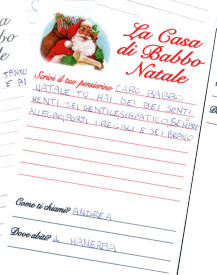 La Casa
di Babbo
Natale
Scrivi il tuo pensierino CARO BABBO
NATALE TU HAI DEI BEI SENTI
MENTI SEI GENTILE SIMPATICO SEMPRE
ALLEGRO, PORTI I REGALI E SEI BRAVO
Come ti chiami? ANDREA
Dove abiti? A MANERBA
TANTO